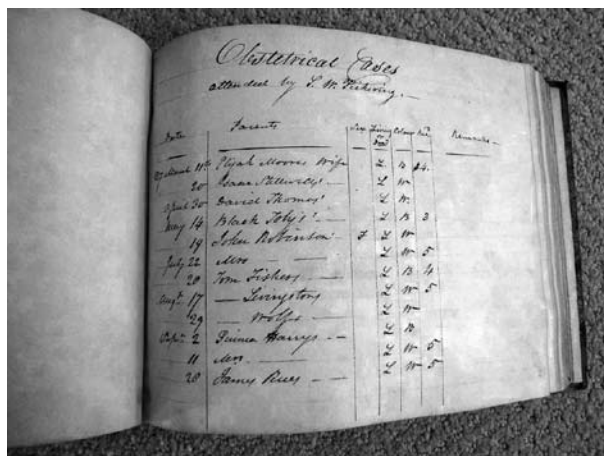 Obstetrical Cases
attended by S. W.
Date Parents Sex Living or Dead Colour Remarks
March 11th Elijah Moores Wife L B 24.
20 Isaac L W
April 30 David Thomas' L W.
May 14 Black Toby's L B 3
19 John Robinton F L W
July 22 Mrs L W 5
28 Tom Fishers L B 4
Augt. 17 Livingstons L W 5
29 Wolfes L W
Sept. 2 Harrys L B
11 Mrs L W 5
28 James L W 5